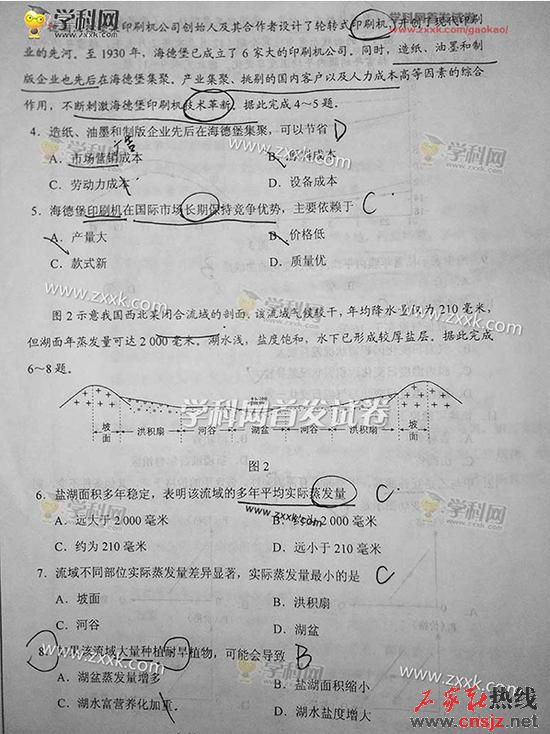 学科网
WWW.ZXXK.COM
学科网首发试卷
www.zxxk.com/gaokao/
印刷机公司创始人及其合作者设计了轮转式印刷机,开创了现代印刷
业的先河。至 1930 年,海德堡已成立了 6 家大的印刷公司。同时,造纸、油墨和制
版企业也先后在海德堡集聚。产业集聚、挑剔的国内客户以及人力成本高等因素的综合
作用,不断刺激海德堡印刷机技术革新。据此完成 4~5 题。
4. 造纸、油墨和制版企业先后在海德堡集聚,可以节省 D
A. 市场营销成本
B. 成本
C. 劳动力成本
D. 设备成本
5. 海德堡印刷机在国际市场长期保持竞争优势,主要依赖于 C
A. 产量大
B. 价格低
C. 款式新
D. 质量优
图 2 示意我国西北某闭合流域的剖面。该流域气候较干,年均降水量仅为 210 毫米,
但湖面年蒸发量可达 2 000 毫米。湖水浅,盐度饱和,水下已形成较厚盐层。据此完成
6~8 题。
盐湖
坡面 洪积扇 河谷 湖盆 河谷 洪积扇 坡面
图 2
6. 盐湖面积多年稳定,表明该流域的多年平均实际蒸发量 C
A. 远大于 2 000 毫米
B. 约为 2 000 毫米
C. 约为 210 毫米
D. 远小于 210 毫米
7. 流域不同部位实际蒸发量差异显著,实际蒸发量最小的是 C
A. 坡面
B. 洪积扇
C. 河谷
D. 湖盆
8. 如果该流域大量种植耐旱植物,可能会导致 B
A. 湖盆蒸发量增多
B. 盐湖面积缩小
C. 湖水富营养化加重
D. 湖水盐度增大
石家庄热线
www.cnsjz.net